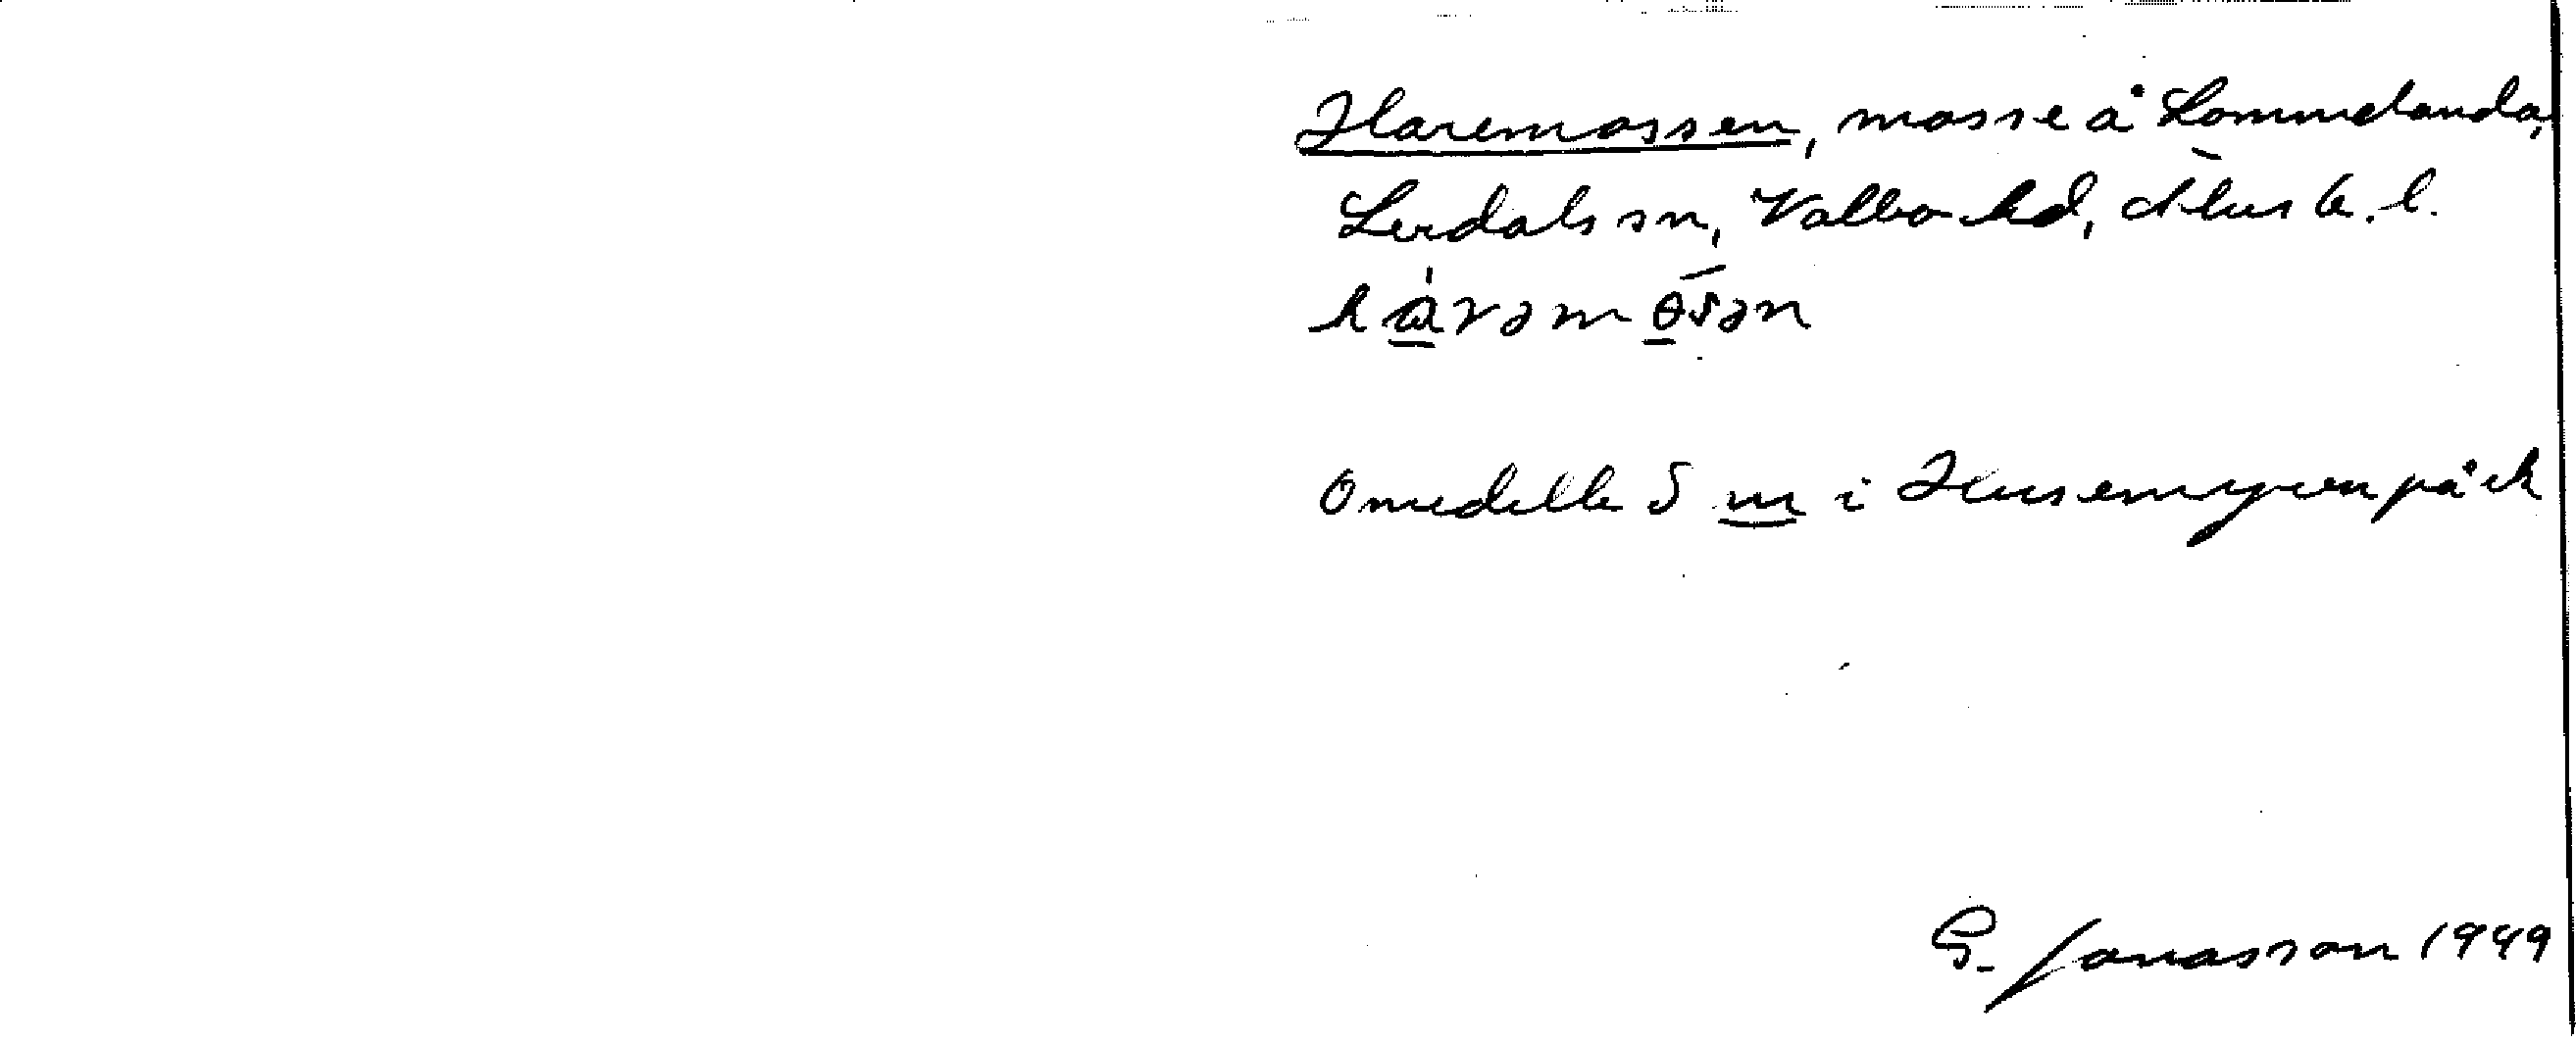 Haremossen, mosse å Lommelanda,
Lerdals sn, Valbo hd, Älvsb. l.
hàrəmósən
Omedelb. S m i Husemyren på ek
G. Jonasson 1949